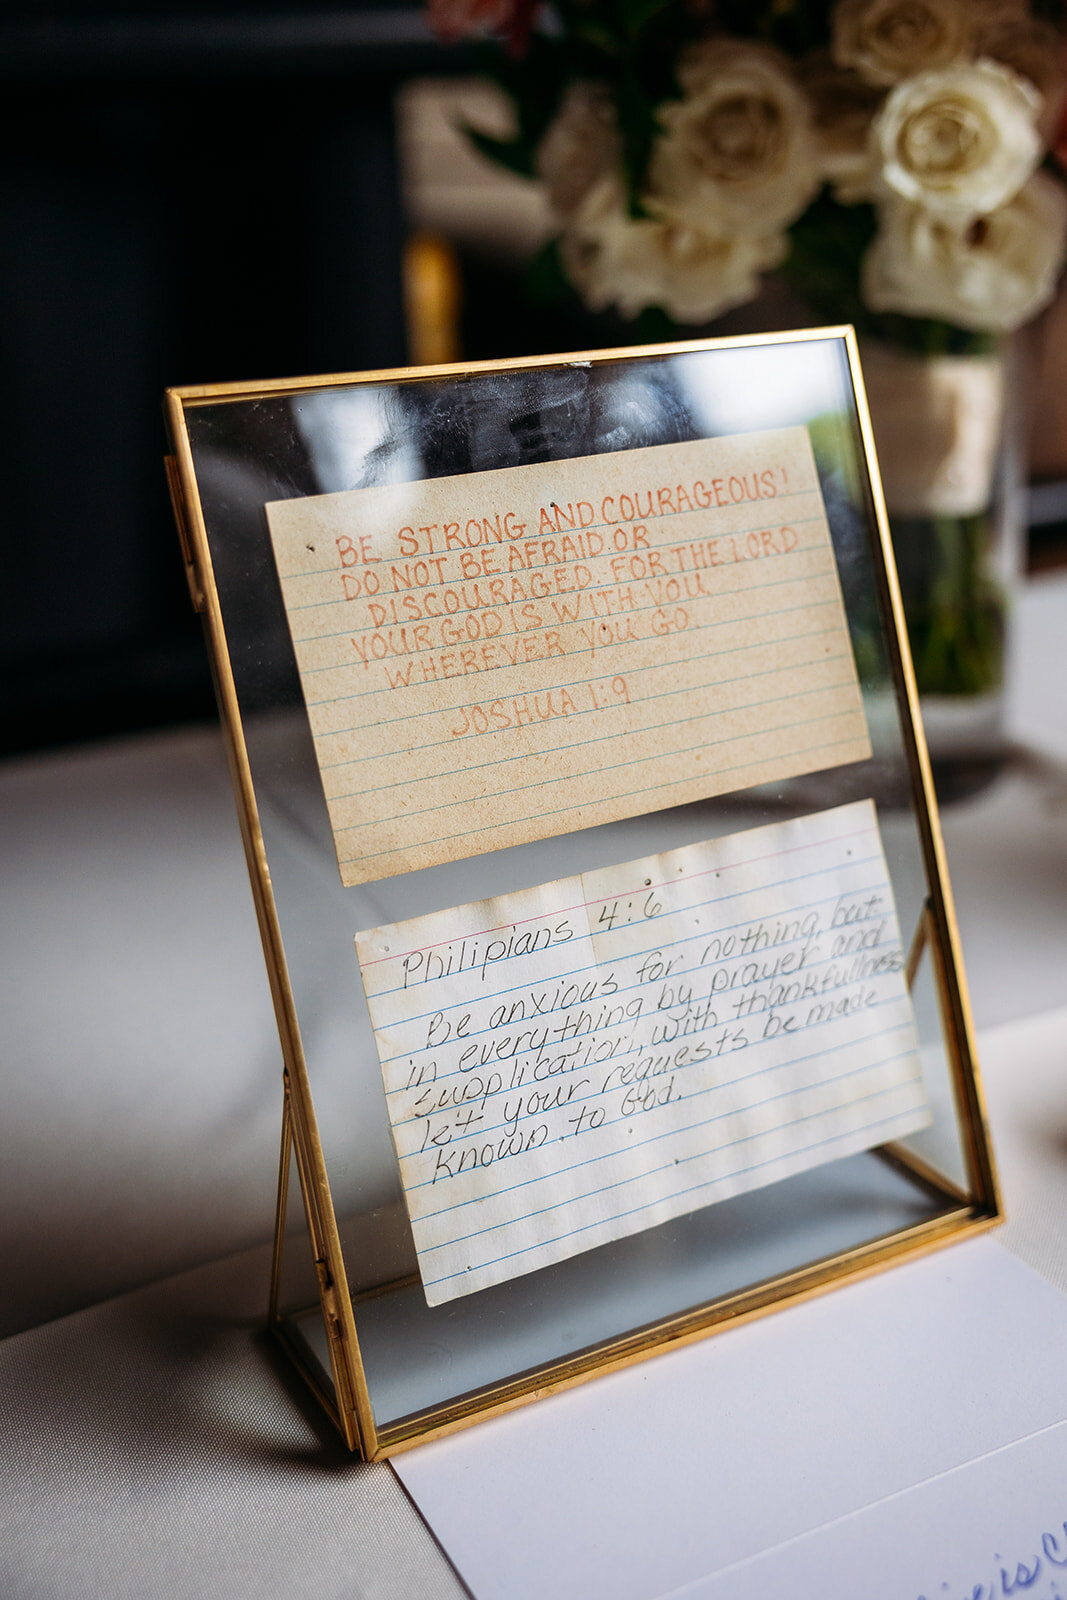 BE STRONG AND COURAGEOUS!
DO NOT BE AFRAID OR
DISCOURAGED. FOR THE LORD
YOUR GOD IS WITH YOU
WHEREVER YOU GO.
JOSHUA 1:9
Philipians 4:6
Be anxious for nothing, but
in everything by prayer and
supplication, with thankfullness
let your requests be made
known to God.
is